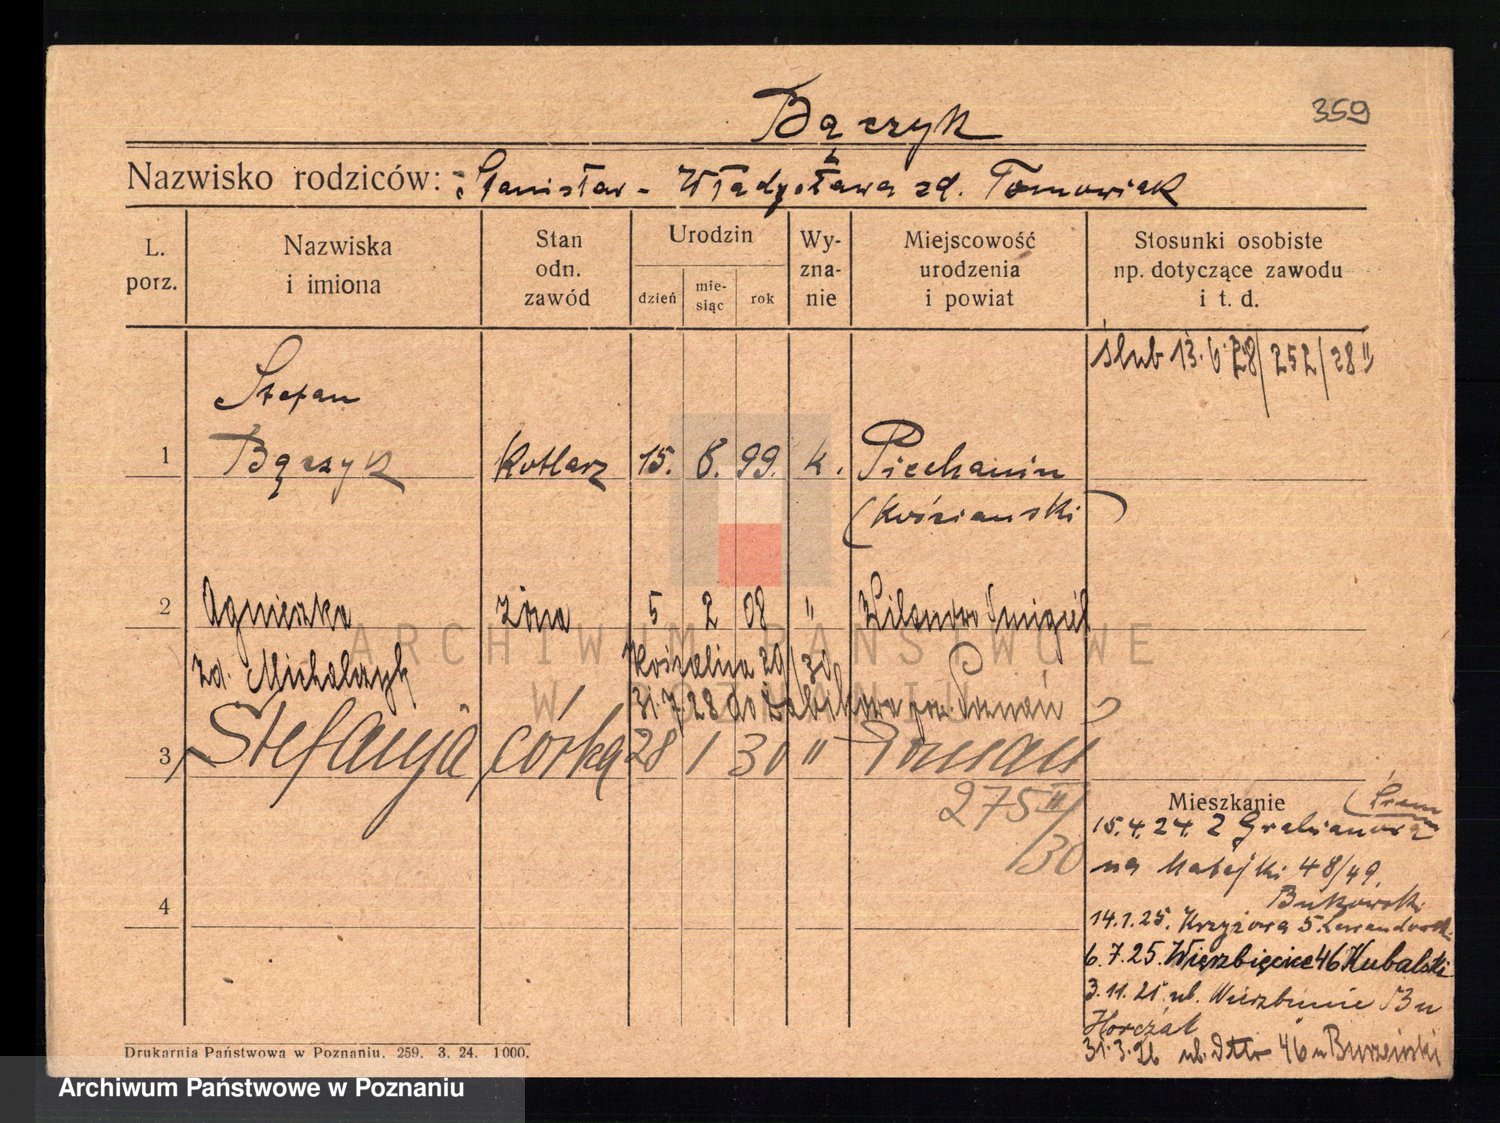 359
Bączyk
Nazwisko rodziców: Stanisław - Władysława zd. Tomowiak
L. porz.
Nazwiska i imiona
Stan odn. zawód
Urodzin
dzień
mie-siąc
rok
Wy-zna-nie
Miejscowość urodzenia i powiat
Stosunki osobiste np. dotyczące zawodu i t. d.
ślub 13.6.28/252/28 II
Stefan
1 Bączyk kotlarz 15. 8. 99. k. Piechanin
(Kościański)
2 Agnieszka żona 5 2 08 " Wilanowo Śmigiel
zd. Michalczyk 29/30
31.7.28 do Żabikowa pow. Poznań
3 Stefanja córka 28 1 30 " Poznań
275 II/30
4
Mieszkanie
15.4.24 z
na Matejki 48/49,
Bukowski
14.1.25. Krzyżowa 5
6.7.25. Wierzbięcice 46 Kubalski
3.11.25 ul. Wierzbięcice
Horczak
31.3.26 ul. dtto 46 u
Drukarnia Państwowa w Poznaniu. 259. 3. 24. 1000.
ARCHIWUM PAŃSTWOWE
W POZNANIU
Archiwum Państwowe w Poznaniu